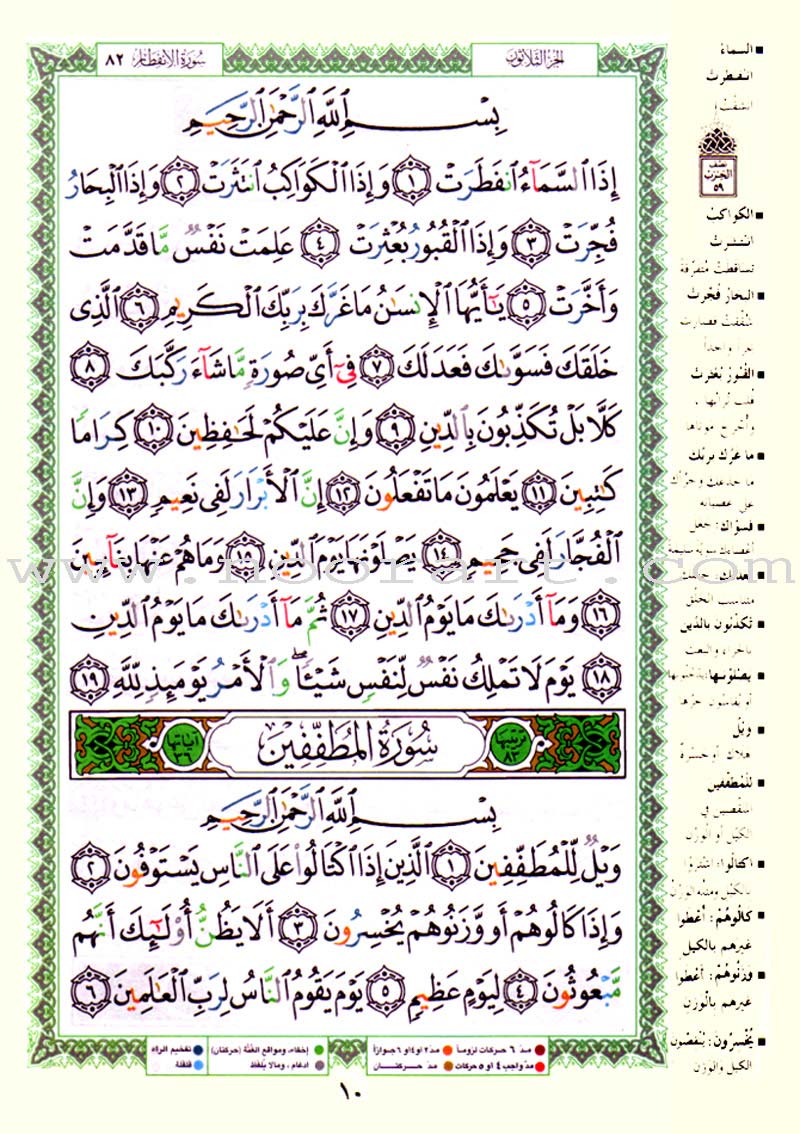 سُورَةُ الانفِطَار ٨٢
الجزء الثلاثون
بِسْمِ ٱللَّهِ ٱلرَّحْمَٰنِ ٱلرَّحِيمِ
إِذَا ٱلسَّمَآءُ ٱنفَطَرَتْ ١ وَإِذَا ٱلْكَوَاكِبُ ٱنتَثَرَتْ ٢ وَإِذَا ٱلْبِحَارُ
فُجِّرَتْ ٣ وَإِذَا ٱلْقُبُورُ بُعْثِرَتْ ٤ عَلِمَتْ نَفْسٌ مَّا قَدَّمَتْ
وَأَخَّرَتْ ٥ يَٰٓأَيُّهَا ٱلْإِنسَٰنُ مَا غَرَّكَ بِرَبِّكَ ٱلْكَرِيمِ ٦ ٱلَّذِى
خَلَقَكَ فَسَوَّىٰكَ فَعَدَلَكَ ٧ فِىٓ أَىِّ صُورَةٍ مَّا شَآءَ رَكَّبَكَ ٨
كَلَّا بَلْ تُكَذِّبُونَ بِٱلدِّينِ ٩ وَإِنَّ عَلَيْكُمْ لَحَٰفِظِينَ ١٠ كِرَامًا
كَٰتِبِينَ ١١ يَعْلَمُونَ مَا تَفْعَلُونَ ١٢ إِنَّ ٱلْأَبْرَارَ لَفِى نَعِيمٍ ١٣ وَإِنَّ
ٱلْفُجَّارَ لَفِى جَحِيمٍ ١٤ يَصْلَوْنَهَا يَوْمَ ٱلدِّينِ ١٥ وَمَا هُمْ عَنْهَا بِغَآئِبِينَ
١٦ وَمَآ أَدْرَىٰكَ مَا يَوْمُ ٱلدِّينِ ١٧ ثُمَّ مَآ أَدْرَىٰكَ مَا يَوْمُ ٱلدِّينِ
١٨ يَوْمَ لَا تَمْلِكُ نَفْسٌ لِّنَفْسٍ شَيْـًٔا ۖ وَٱلْأَمْرُ يَوْمَئِذٍ لِّلَّهِ ١٩
ترتيبها ٨٣ سُورَةُ المُطَفِّفِينَ آياتها ٣٦
بِسْمِ ٱللَّهِ ٱلرَّحْمَٰنِ ٱلرَّحِيمِ
وَيْلٌ لِّلْمُطَفِّفِينَ ١ ٱلَّذِينَ إِذَا ٱكْتَالُوا۟ عَلَى ٱلنَّاسِ يَسْتَوْفُونَ ٢
وَإِذَا كَالُوهُمْ أَو وَّزَنُوهُمْ يُخْسِرُونَ ٣ أَلَا يَظُنُّ أُو۟لَٰٓئِكَ أَنَّهُم
مَّبْعُوثُونَ ٤ لِيَوْمٍ عَظِيمٍ ٥ يَوْمَ يَقُومُ ٱلنَّاسُ لِرَبِّ ٱلْعَٰلَمِينَ ٦
السماءُ
انفطرتْ
انشقّتْ
نصف
الحزب
٥٩
الكواكبُ
انتثرتْ
تساقطتْ متفرّقةً
البحارُ فُجّرتْ
شُقّقتْ فصارت
بحرا واحداً
القبورُ بُعثرتْ
قُلِب ترابُها،
وأُخرج موتاها
ما غرّك بربّك
ما خدعك وجرّأك
على عصيانه
فسوّاك: جعل
أعضاءك سويّة سليمة
متناسب الخلق
تُكذّبون بالدّين
بالجزاء والبعث
يصلَوْنها
أو يقاسون حرّها
ويلٌ
هلاك أو حسرةٌ
للمطفّفين
المنقصين في
الكيل أو الوزن
اكتالوا: اشتروا
بالكيل ومثله الوزنُ
كالُوهُمْ: أعْطوا
غيرهم بالكيل
وزنُوهُمْ: أعْطوا
غيرهم بالوزن
يُخْسِرُون: يُنقصون
الكيل والوزن
مدّ ٦ حركات لزوماً مدّ ٢ أو ٤ أو ٦ جوازاً إخفاء، ومواقع الغُنَّة (حركتان) تفخيم الراء
مدّ واجب ٤ أو ٥ حركات مدّ حركتان إدغام، ومالا يُلفظ قلقلة
١٠
www.noorart.com